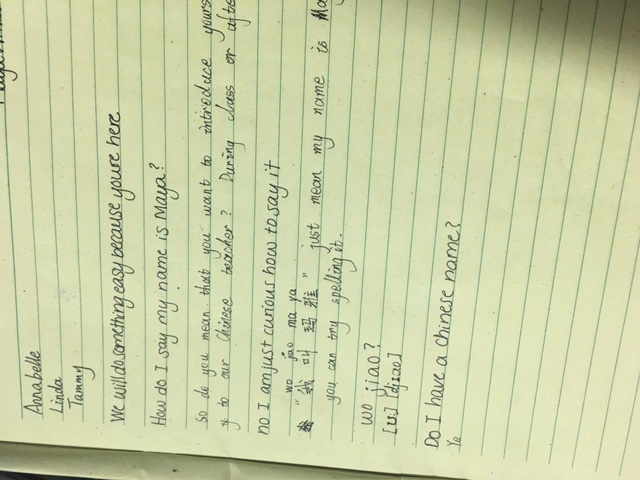 Annabelle
Linda
Tammy
We will do something easy because youre here
How do I say my name is Maya?
So do you mean that you want to introduce yours
to our Chinese teacher? During class or afte
no I am just curious how to say it
wo jiao ma ya
"我 叫 玛 雅" just mean my name is Ma
you can try spelling it.
wo jiao?
Do I have a chinese name?
Ye